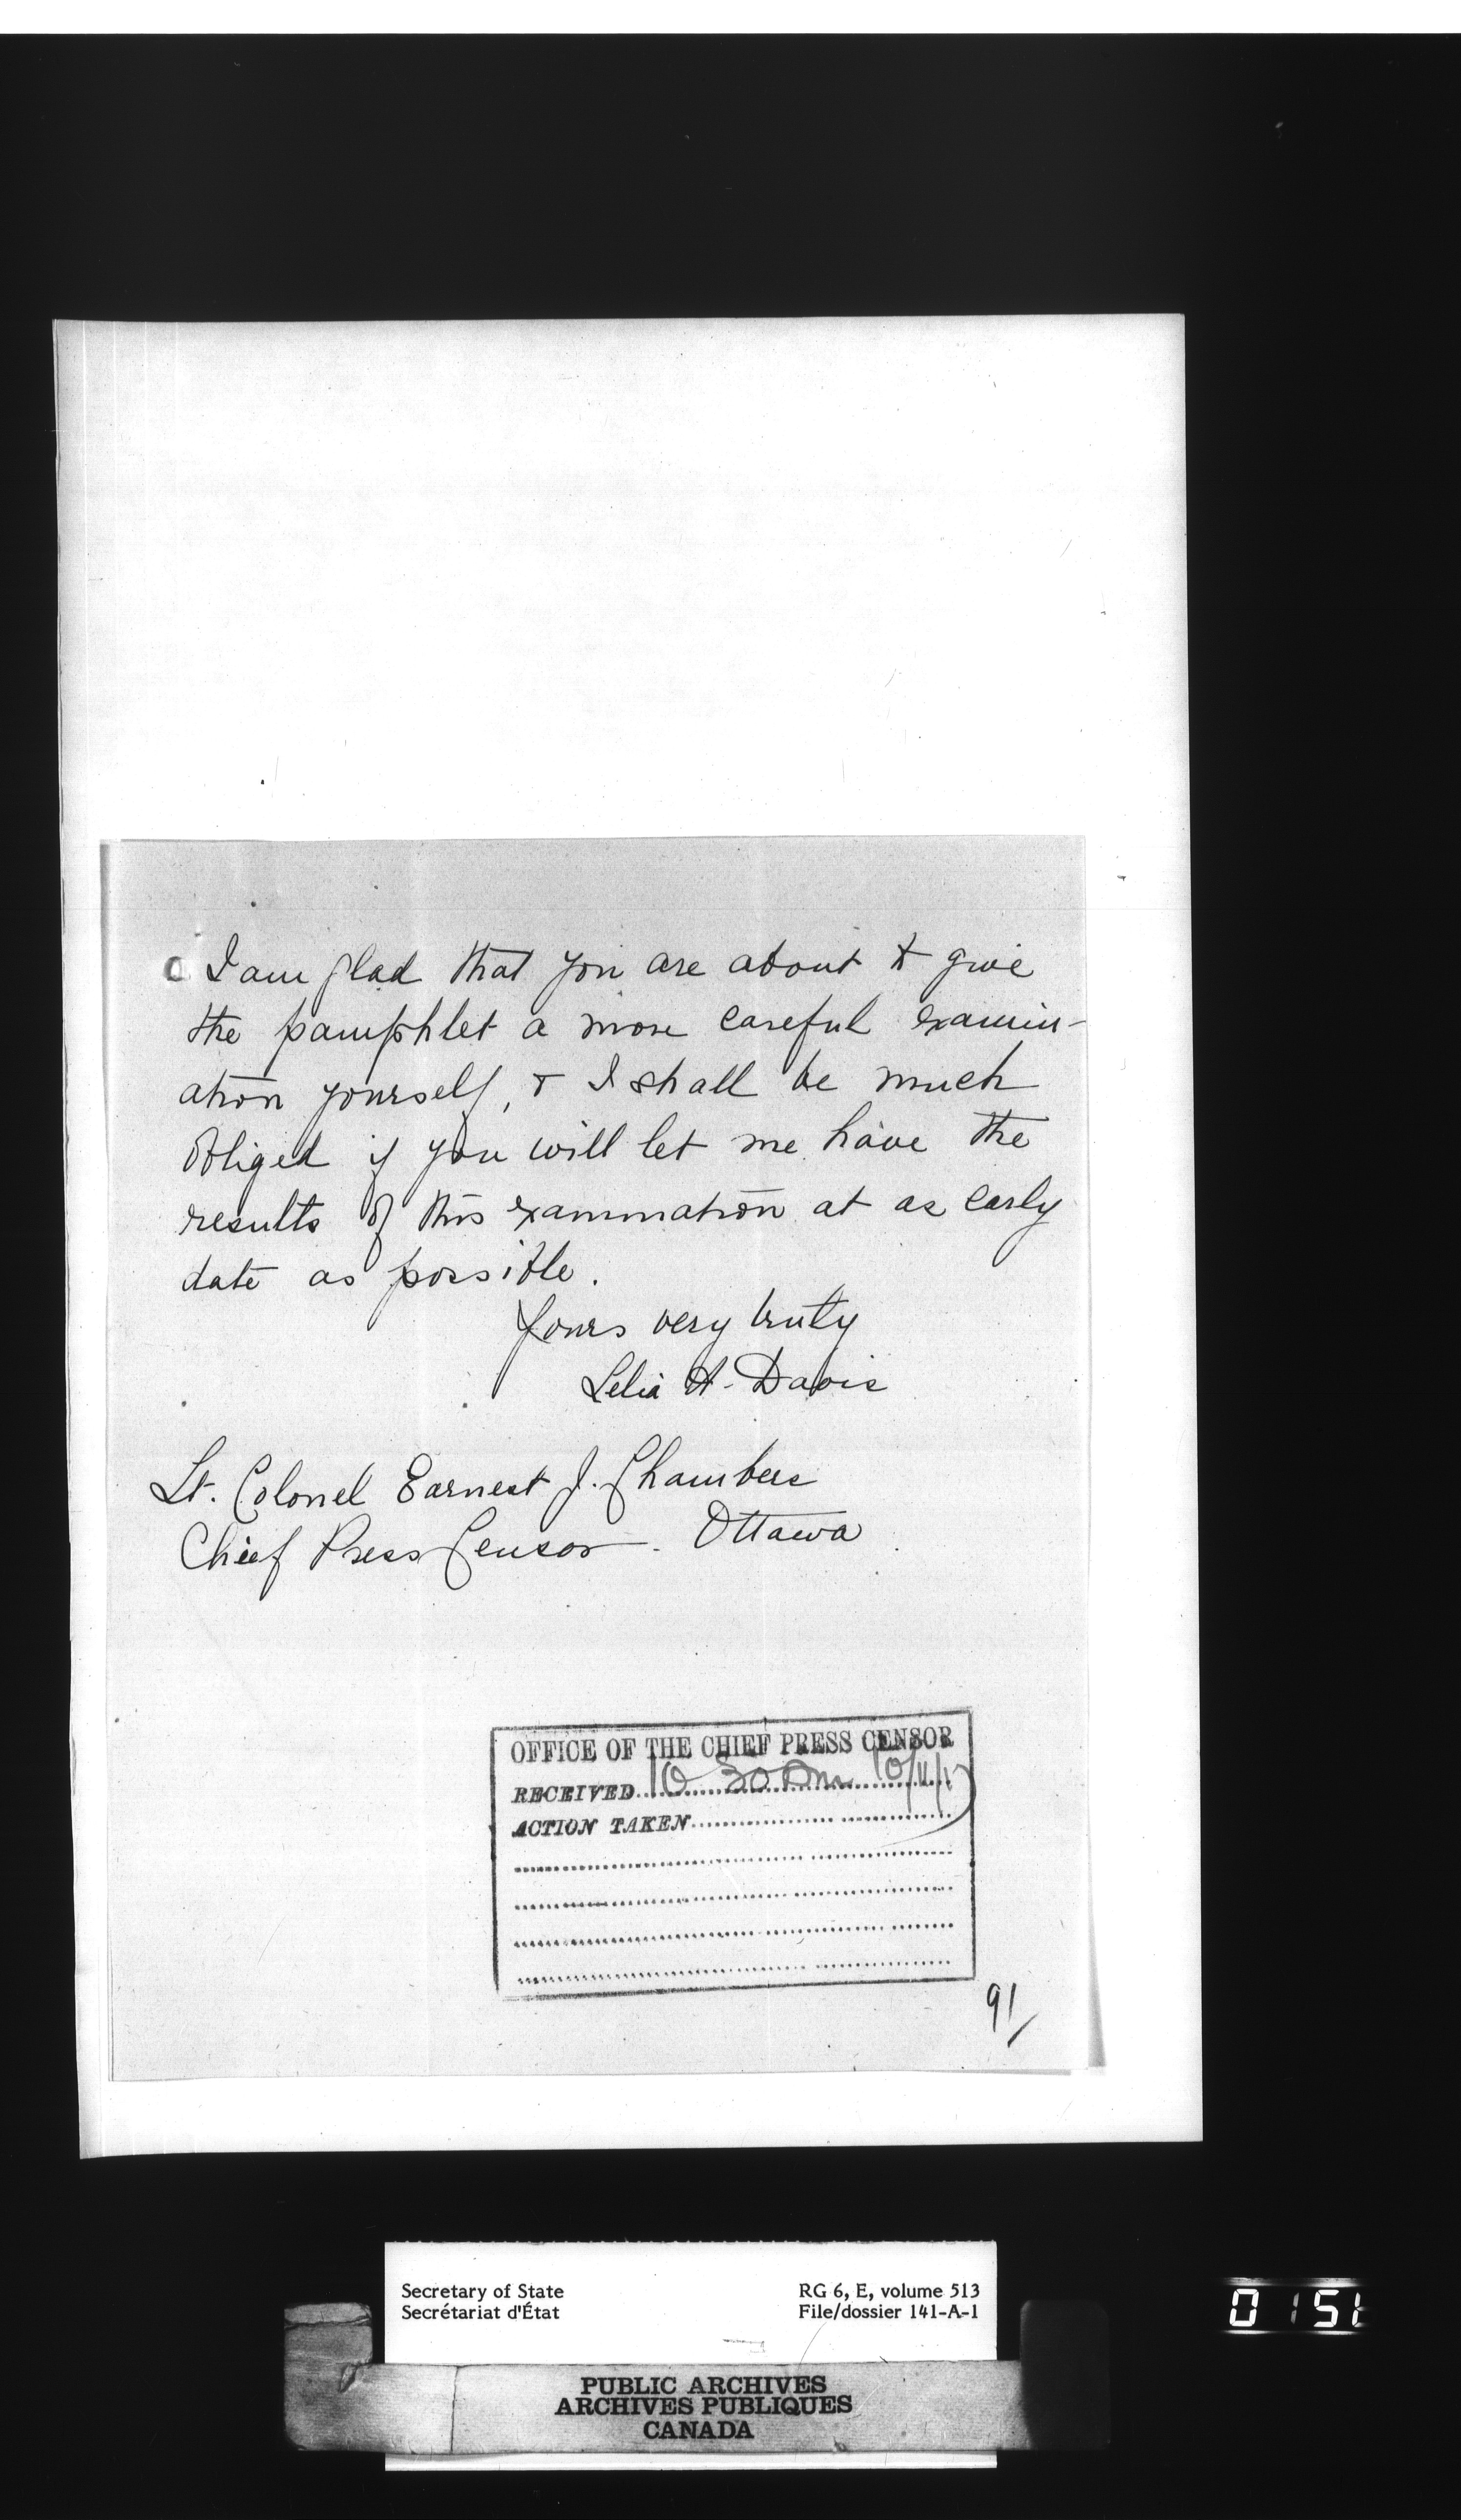 I am glad that you are about to give
the pamphlet a more careful examin-
ation yourself, & I shall be much
obliged if you will let me have the
results of this examination at as early
date as possible.
Yours very truly
Lelia A. Davis
Lt. Colonel Earnest J. Chambers
Chief Press Censor. Ottawa.
OFFICE OF THE CHIEF PRESS CENSOR
RECEIVED 10 30 am 10/11/17
ACTION TAKEN
91/
Secretary of State RG 6, E, volume 513
Secrétariat d'État File/dossier 141-A-1
0151
PUBLIC ARCHIVES
ARCHIVES PUBLIQUES
CANADA